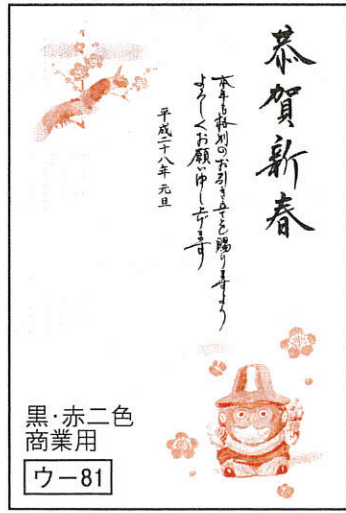 恭賀新春
本年も格別のお引き立てを賜りますよう
よろしくお願い申し上げます
平成二十八年 元旦
黒・赤二色
商業用
ウー81